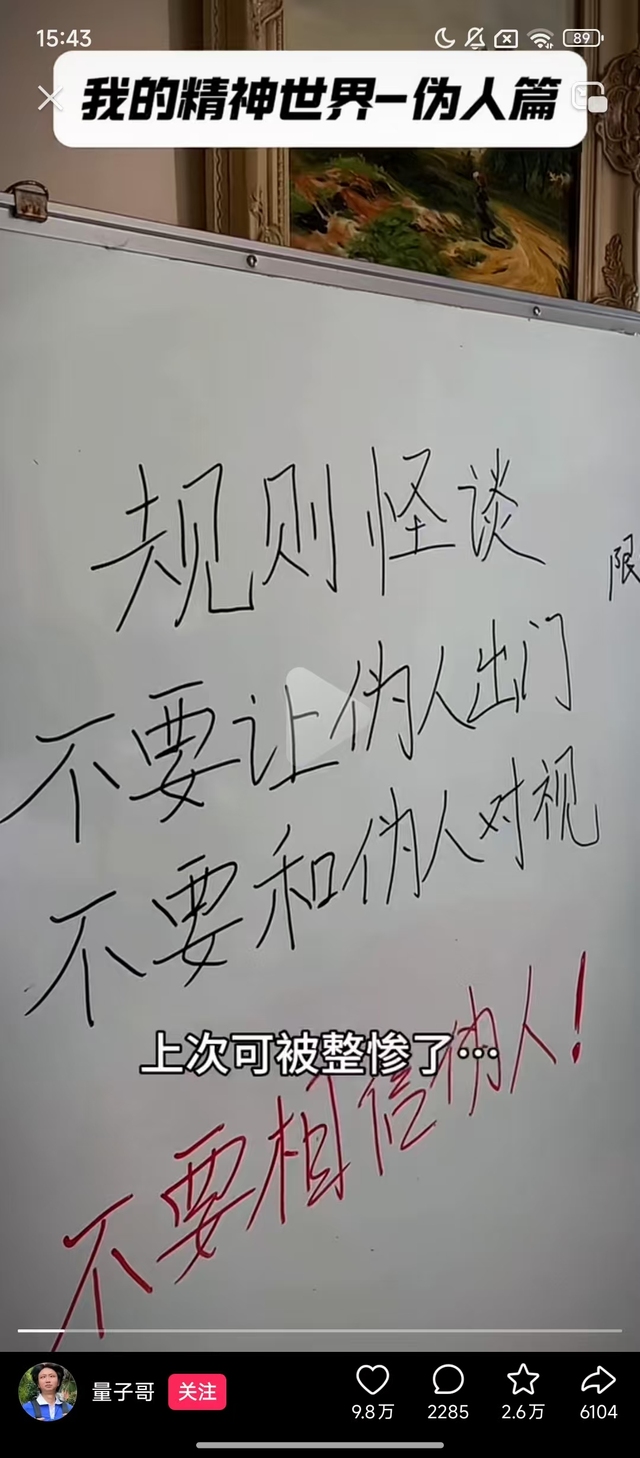 15:43
89
我的精神世界-伪人篇
规则怪谈
限
不要让伪人出门
不要和伪人对视
上次可被整惨了…
不要相信伪人!
量子哥
关注
9.8万
2285
2.6万
6104